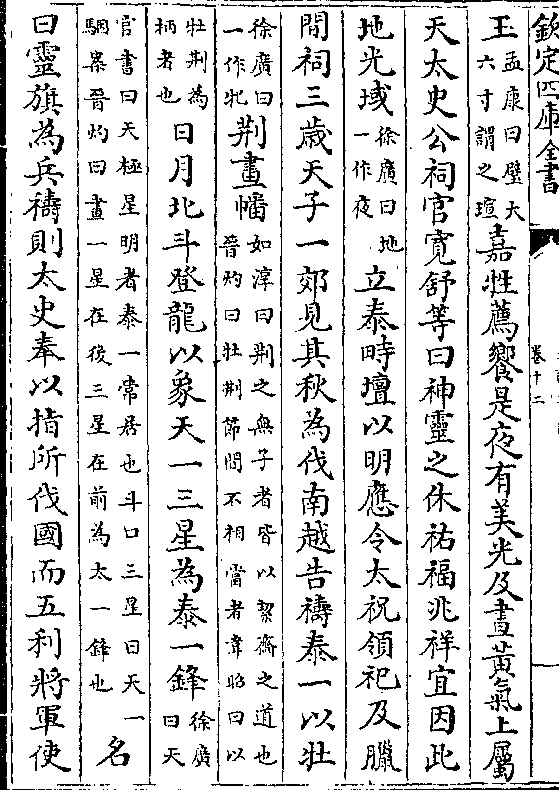 欽定四庫全書 卷十二
王孟康曰璧大六寸謂之瑄嘉牲薦饗是夜有美光及晝黃氣上屬
天太史公祠官寛舒等曰神靈之休祐福兆祥宜因此
地光域徐廣曰地一作夜立泰畤壇以明應令太祝領祀及臘
間祠三歲天子一郊見其秋為伐南越告禱泰一以牡
徐廣曰一作牝荆畫幡如淳曰荆之無子者皆以絜齋之道也晉灼曰牡荆節間不相當者韋昭曰以
牡荆為柄者也日月北斗登龍以象天一三星為泰一鋒徐廣曰天
官書曰天極星明者泰一常居也斗口三星曰天一駰案晉灼曰畫一星在後三星在前為太一鋒也名
曰靈旗為兵禱則太史奉以指所伐國而五利將軍使